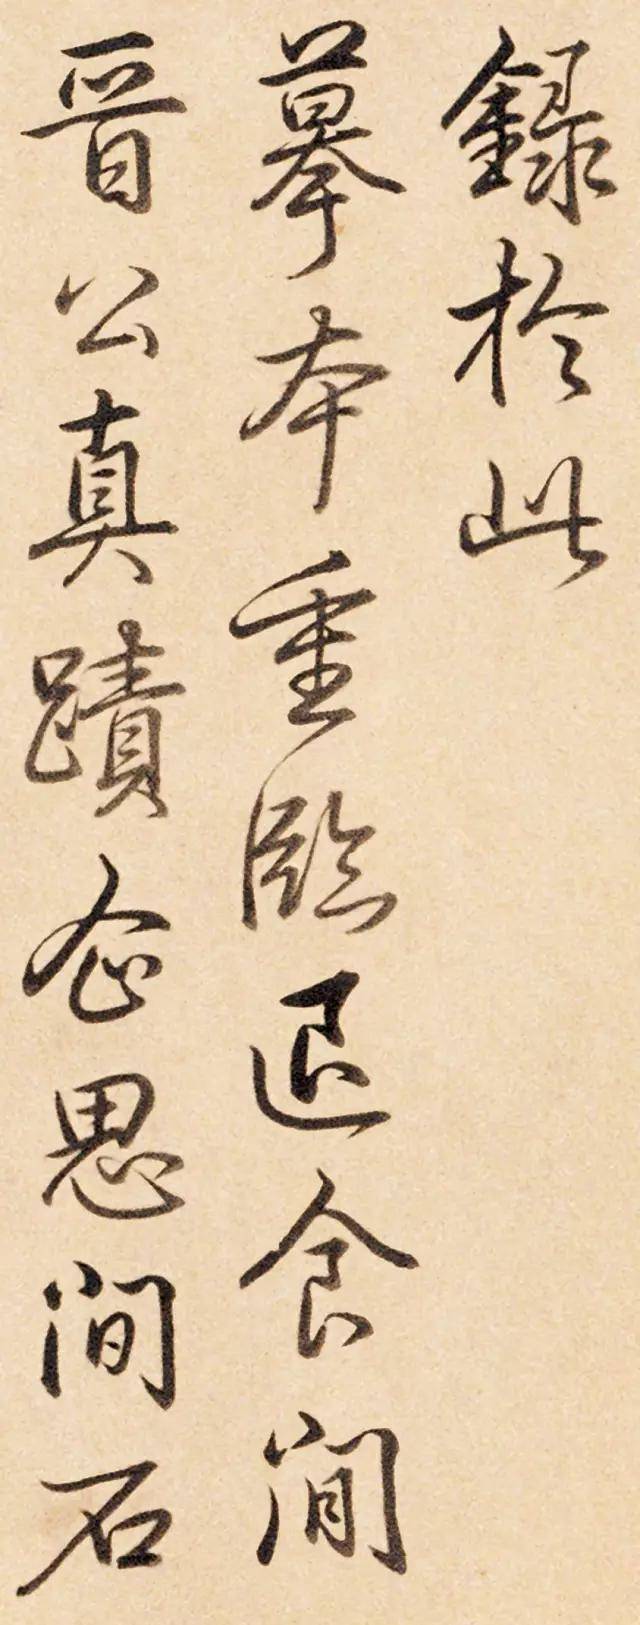 録於此
摹本重臨退食間
晉公真蹟企思間石